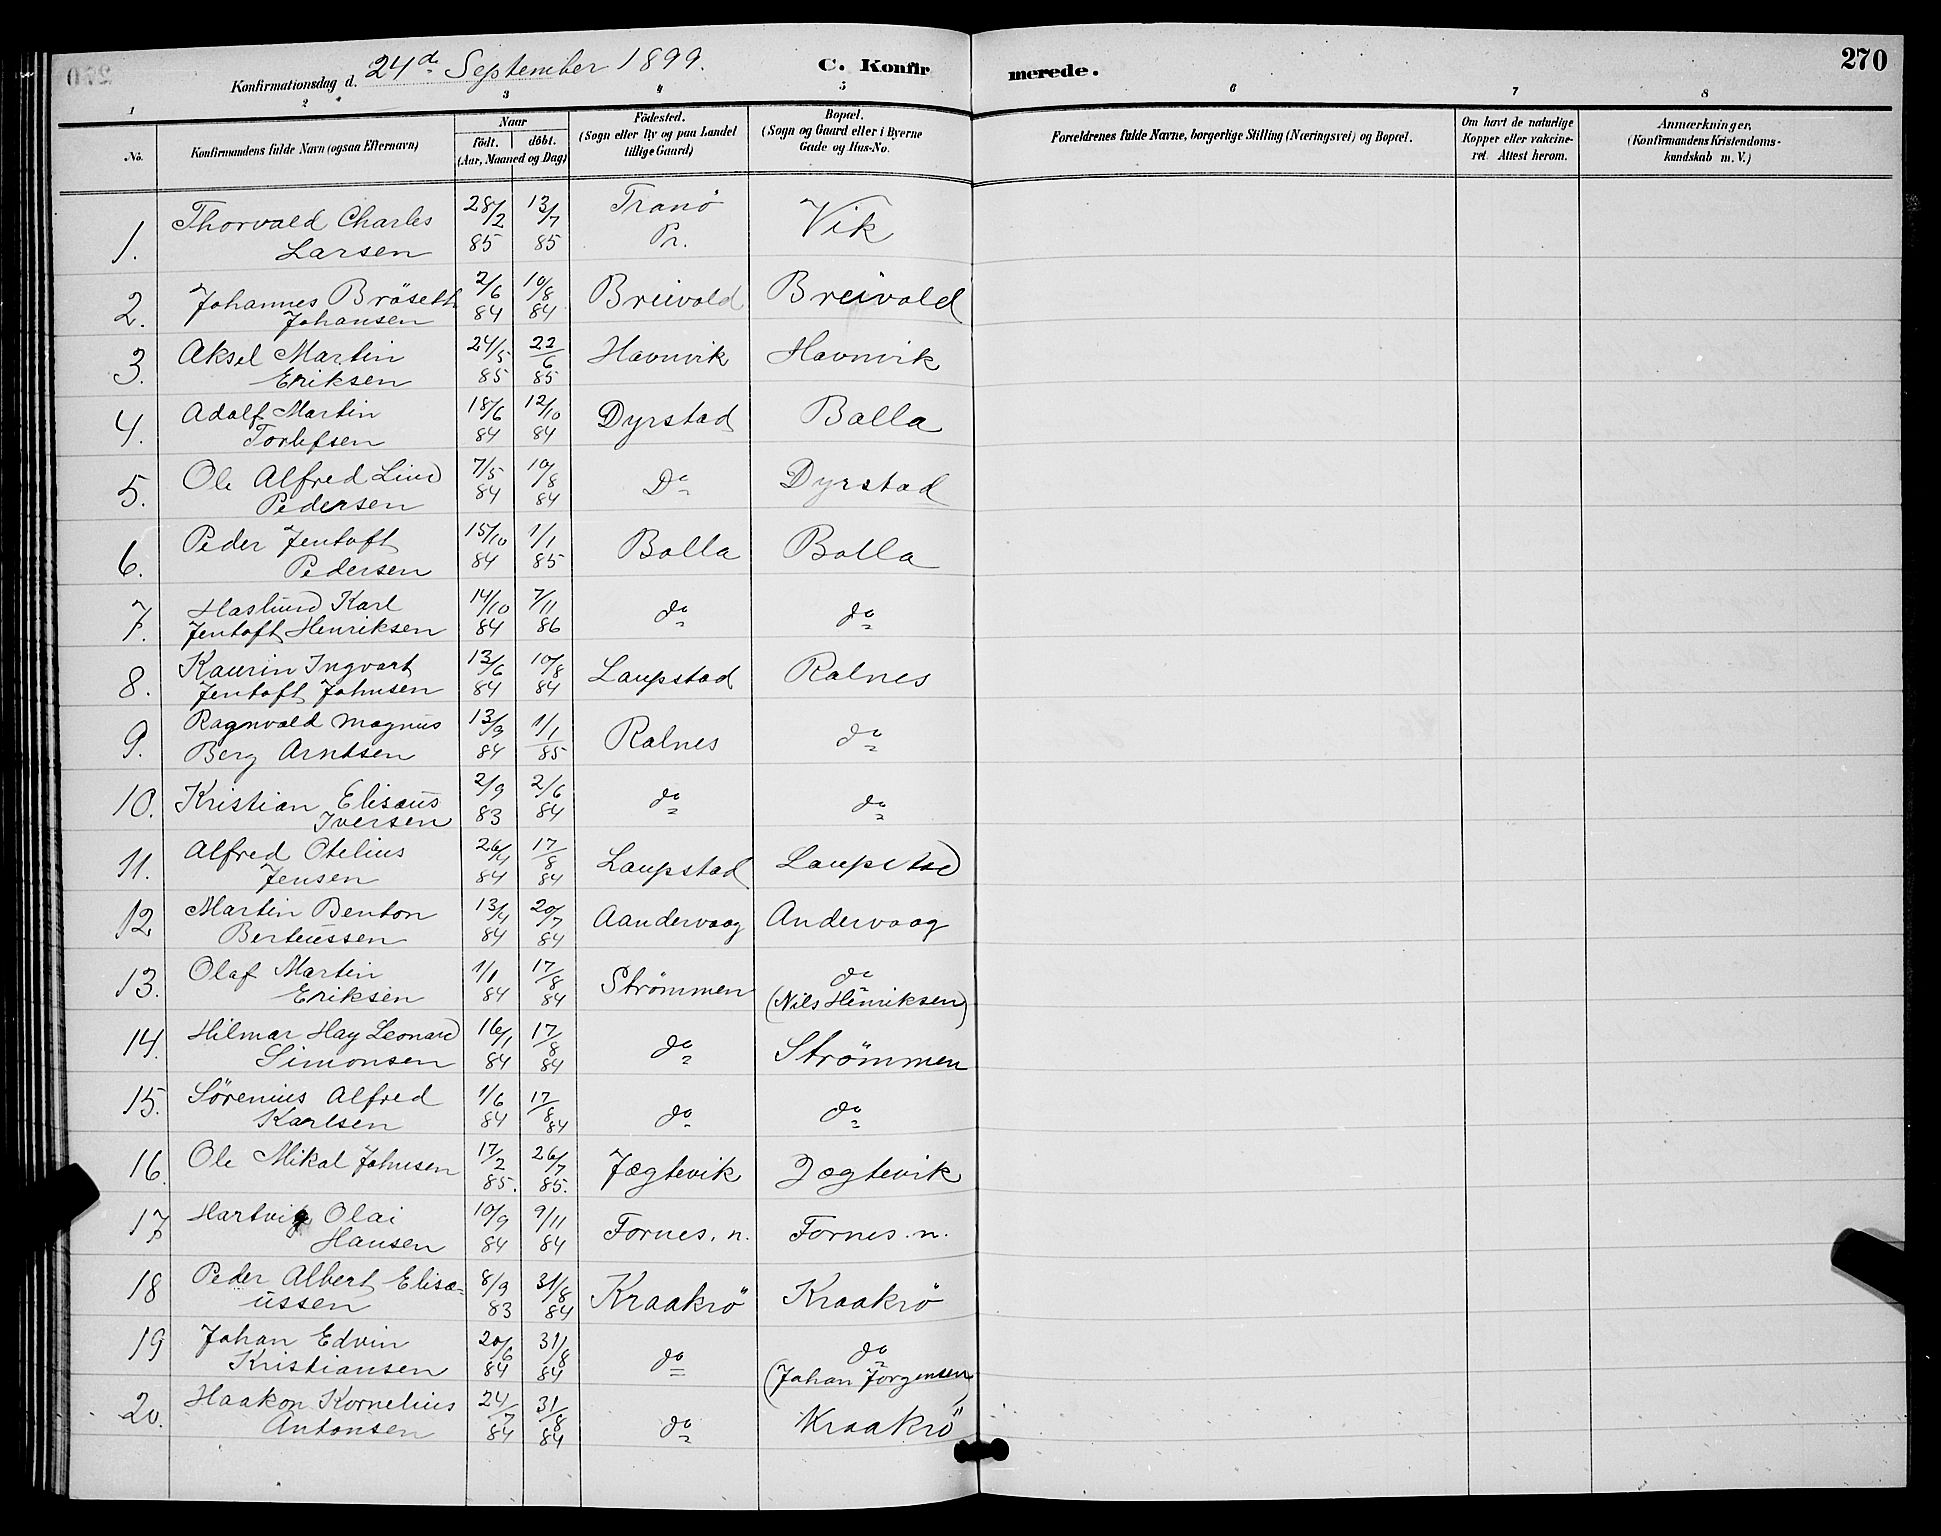 270
Konfirmationsdag d. 24de September 1899.
C. Konfirmerede.
1 2 3 4 5 6 7 8
No.
Konfirmandens fulde Navn (ogsaa Efternavn)
Naar
födt. döbt.
(Aar, Maaned og Dag)
Födested.
(Sogn eller By og paa Landet
tillige Gaard)
Bopæl.
(Sogn og Gaard eller i Byerne
Gade og Hus-No.
Forældrenes fulde Navne, borgerlige Stilling (Næringsvei) og Bopæl.
Om havt de naturlige
Kopper eller vakcine-
ret. Attest herom.
Anmærkninger.
(Konfirmandens Kristendoms-
kundskab m. V.)
1. Thorvald Charles Larsen 28/2 85 13/7 85 Tranö Pr. Vik
2. Johannes Bröseth Johansen 2/6 84 10/8 84 Breivold Breivold
3. Aksel Martin Eriksen 24/5 85 22/6 85 Havnvik Havnvik
4. Adolf Martin Torlefsen 18/6 84 12/10 84 Dyrstad Balla
5. Ole Alfred Lind Pedersen 7/5 84 10/8 84 Do Dyrstad
6. Peder Jentoft Pedersen 15/10 84 1/1 85 Bolla Bolla
7. Haslund Karl Jentoft Henriksen 14/10 84 7/11 86 do do
8. Kaurin Ingvart Jentoft Johnsen 13/6 84 10/8 84 Laupstad Ralnes
9. Ragnvald Magnus Berg Arntsen 13/9 84 1/1 85 Ralnes do
10. Kristian Elisæus Iversen 2/9 83 2/6 84 do do
11. Alfred Otelius Jensen 26/4 84 17/8 84 Laupstad Laupstad
12 Martin Benton Berteussen 13/4 84 20/7 84 Aandervaag Andervaag
13. Olaf Martin Eriksen 1/1 84 17/8 84 Strømmen do (Nils Henriksen)
14. Hilmar Hay Leonard Simonsen 16/1 84 17/8 84 do Strømmen
15. Sörenius Alfred Karlsen 1/6 84 17/8 84 do do
16. Ole Mikal Johnsen 17/2 85. 26/7 85. Jægtevik Jægtevik
17 Hartvig Olai Hansen 10/9 84 9/11 84 Fornes. n. Fornes. n.
18 Peder Albert Elisæ=ussen 8/9 83 31/8 84 Kraakrö Kraakrö
19 Johan Edvin Kristiansen 20/6 84 31/8 84 do do (Johan Jörgensen)
20. Haakon Kornelius Antonsen 24/7 84 31/8 84 do Kraakrö